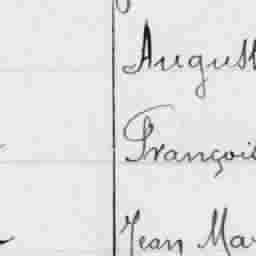 August
François
Jean Mar